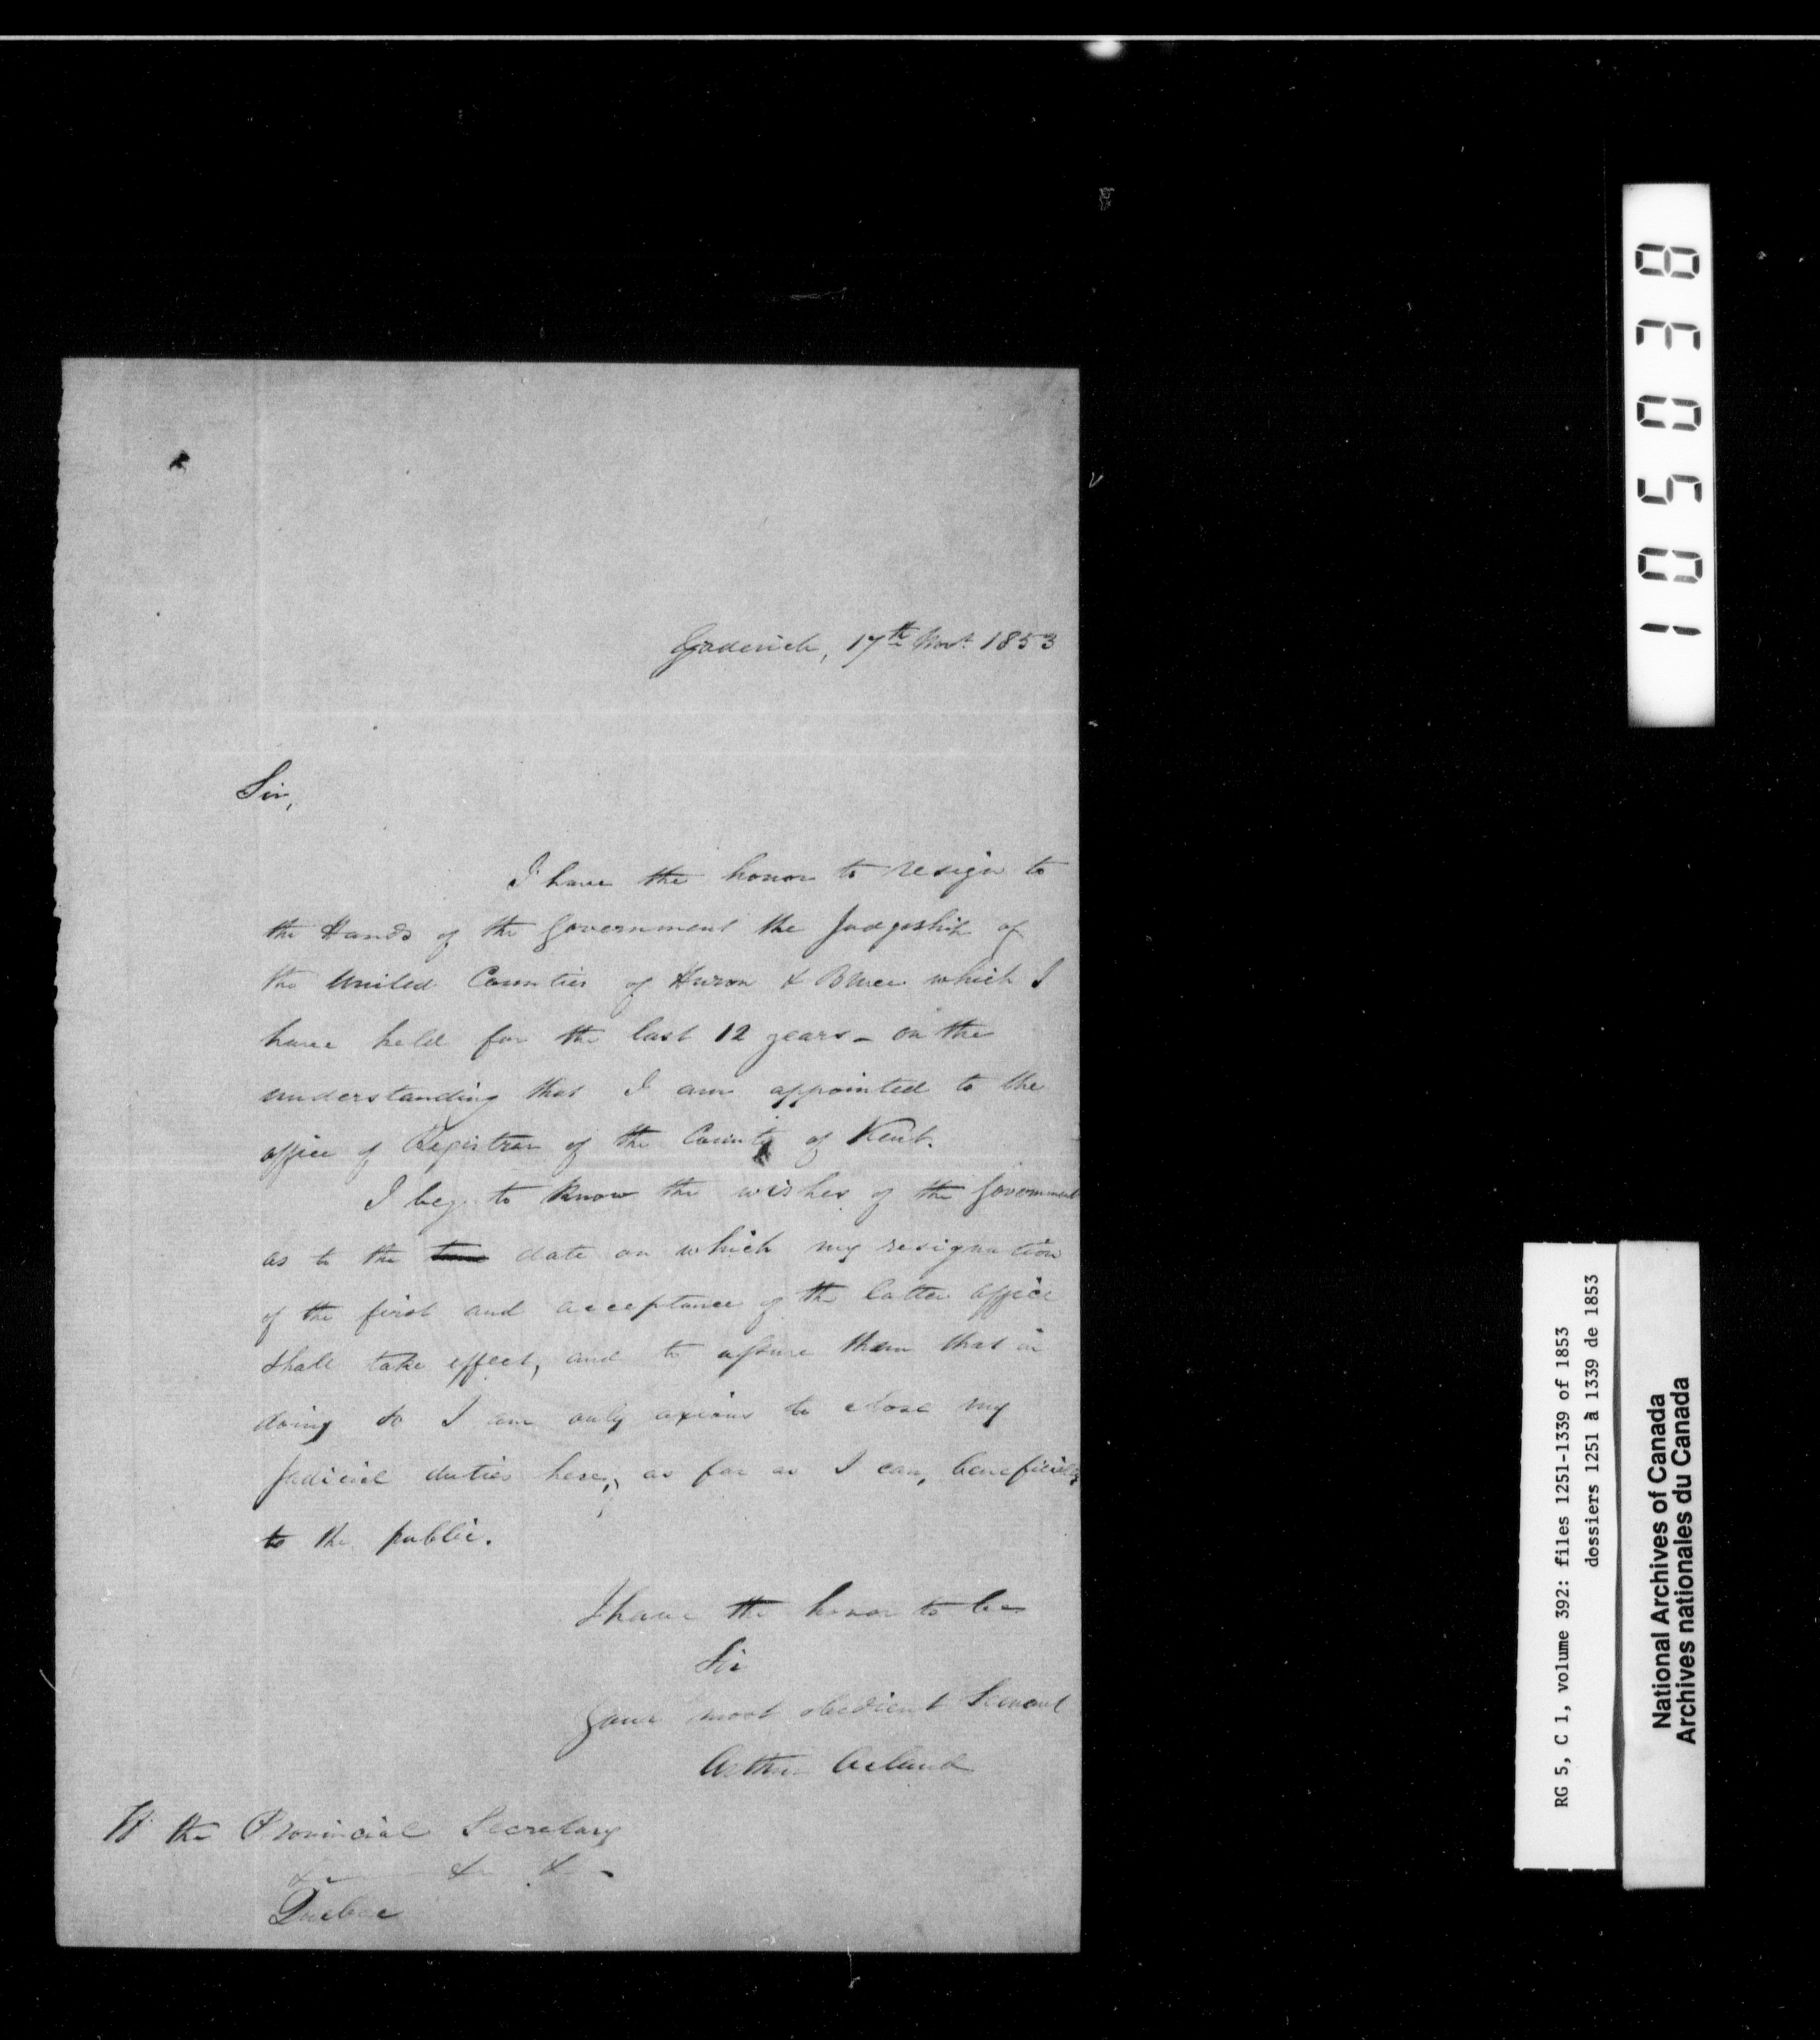 Goderich, 17th Novr. 1853
Sir,
I have the honor to resign to
the Hands of the Government the Judgeship of
the United Counties of Huron & Bruce which I
have held for the last 12 years - on the
understanding that I am appointed to the
office of Registrar of the County of Kent.
I beg to know the wishes of the Government
as to the time date on which my resignation
of the first and acceptance of the latter office
shall take effect, and to assure them that in
doing so I am only axious to close my
Judicial duties here, as far as I can, beneficially
to the public.
I have the honor to be
Sir
Your most obedient Servant
Arthur Acland
the Provincial Secretary
&c &c &c
Quebec
105038
RG 5, C 1, volume 392: files 1251-1339 of 1853
dossiers 1251 à 1339 de 1853
National Archives of Canada
Archives nationales du Canada